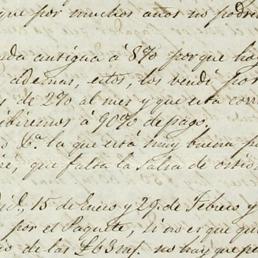 que por muchos años no podré
nda antigua á 8% porque ha
ademas, estos, los vendí por
s de 2% al mes y que está corr
diremos á 90% de pago.
la que está muy buena p
que falta la salsa de
15 de Enero y 29 de Febrero y
por el Paquete, si no es que
go de las £63 m/. no hay que p